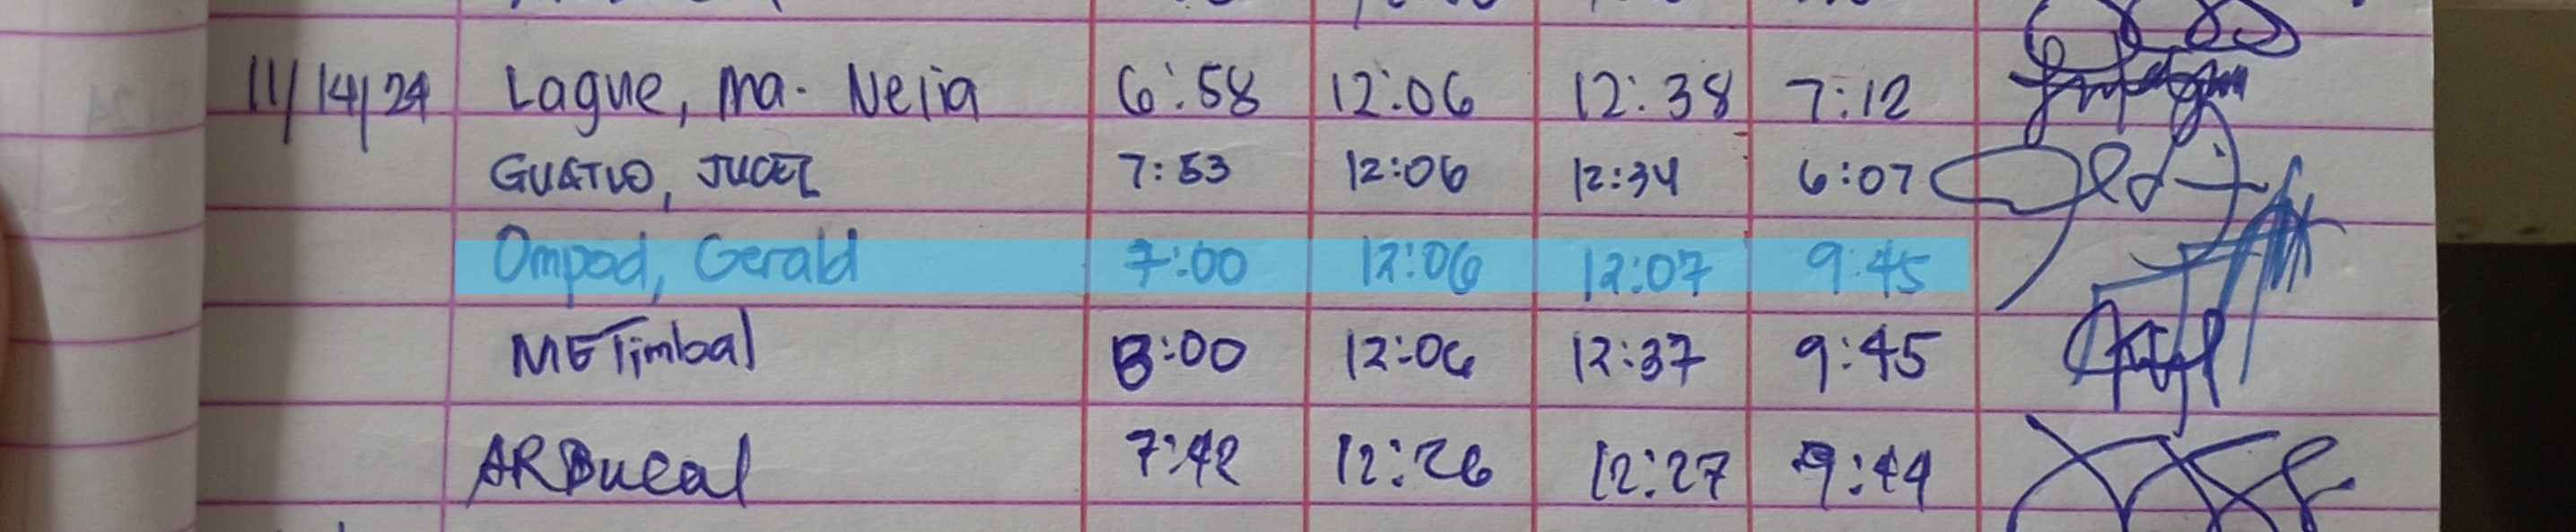 11/14/24 Lague, Ma. Nelia 6:58 12:06 12:38 7:12
GUATLO, JUCEL 7:53 12:06 12:34 6:07
Ompod, Gerald 7:00 12:06 12:07 9:45
METimbal 8:00 12:06 12:37 9:45
ARBucal 7:42 12:26 12:27 9:44